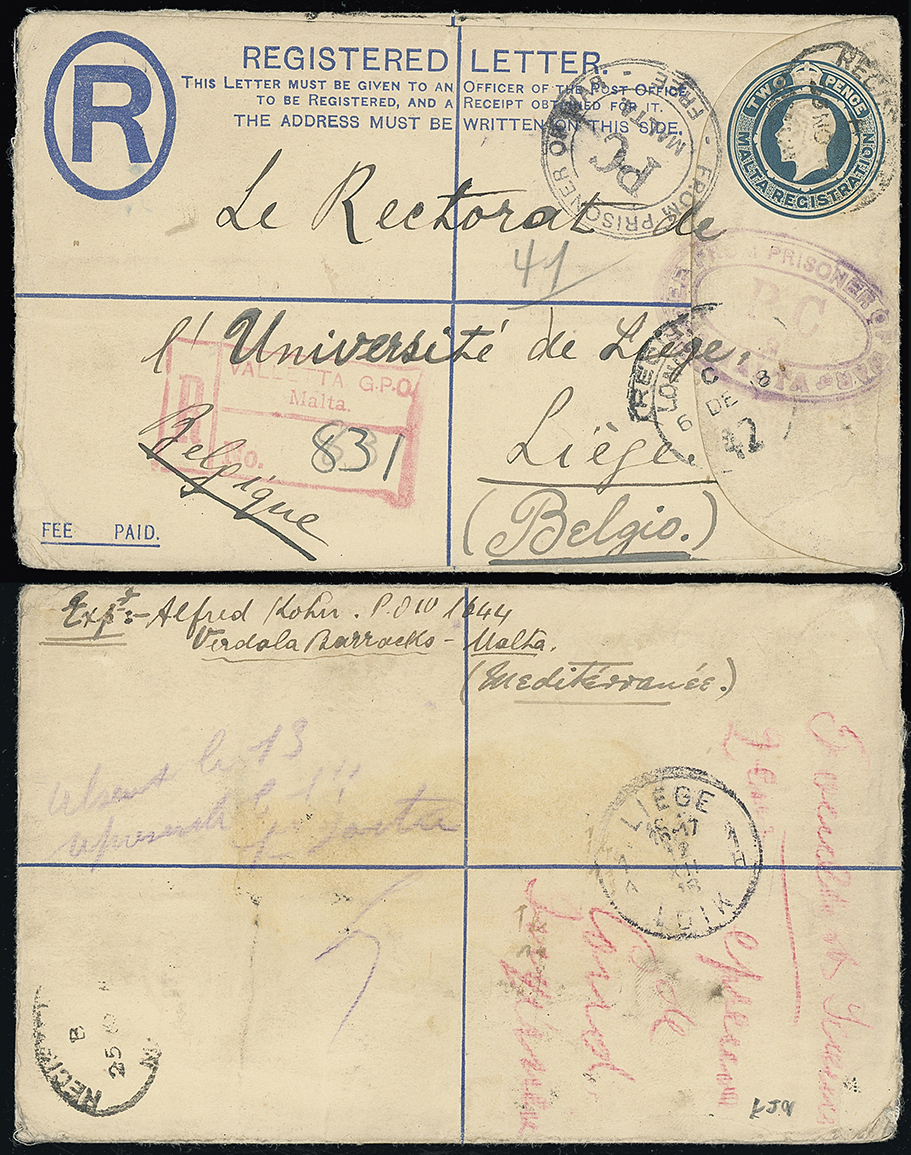 R
REGISTERED LETTER.
THIS LETTER MUST BE GIVEN TO AN OFFICER OF THE POST OFFICE
TO BE REGISTERED, AND A RECEIPT OBTAINED FOR IT.
THE ADDRESS MUST BE WRITTEN ON THIS SIDE.
TWO PENCE
MALTA REGISTRATION
FROM PRISONER OF
FREE
MALTA
PC
Le Rectorat de
41
FROM PRISONER OF WAR
P.C
MALTA
l'Université de Liège.
VALLETTA G.P.O.
Malta.
R
No.
831
LONDON
6 DE 18
42
Liège
Belgique
(Belgio.)
FEE PAID.
Expr:- Alfred Kohn. P.O.W 1644
Verdala Barracks - Malta.
(Mediterranée.)
Absent le 13
LIEGE
LUIK
25